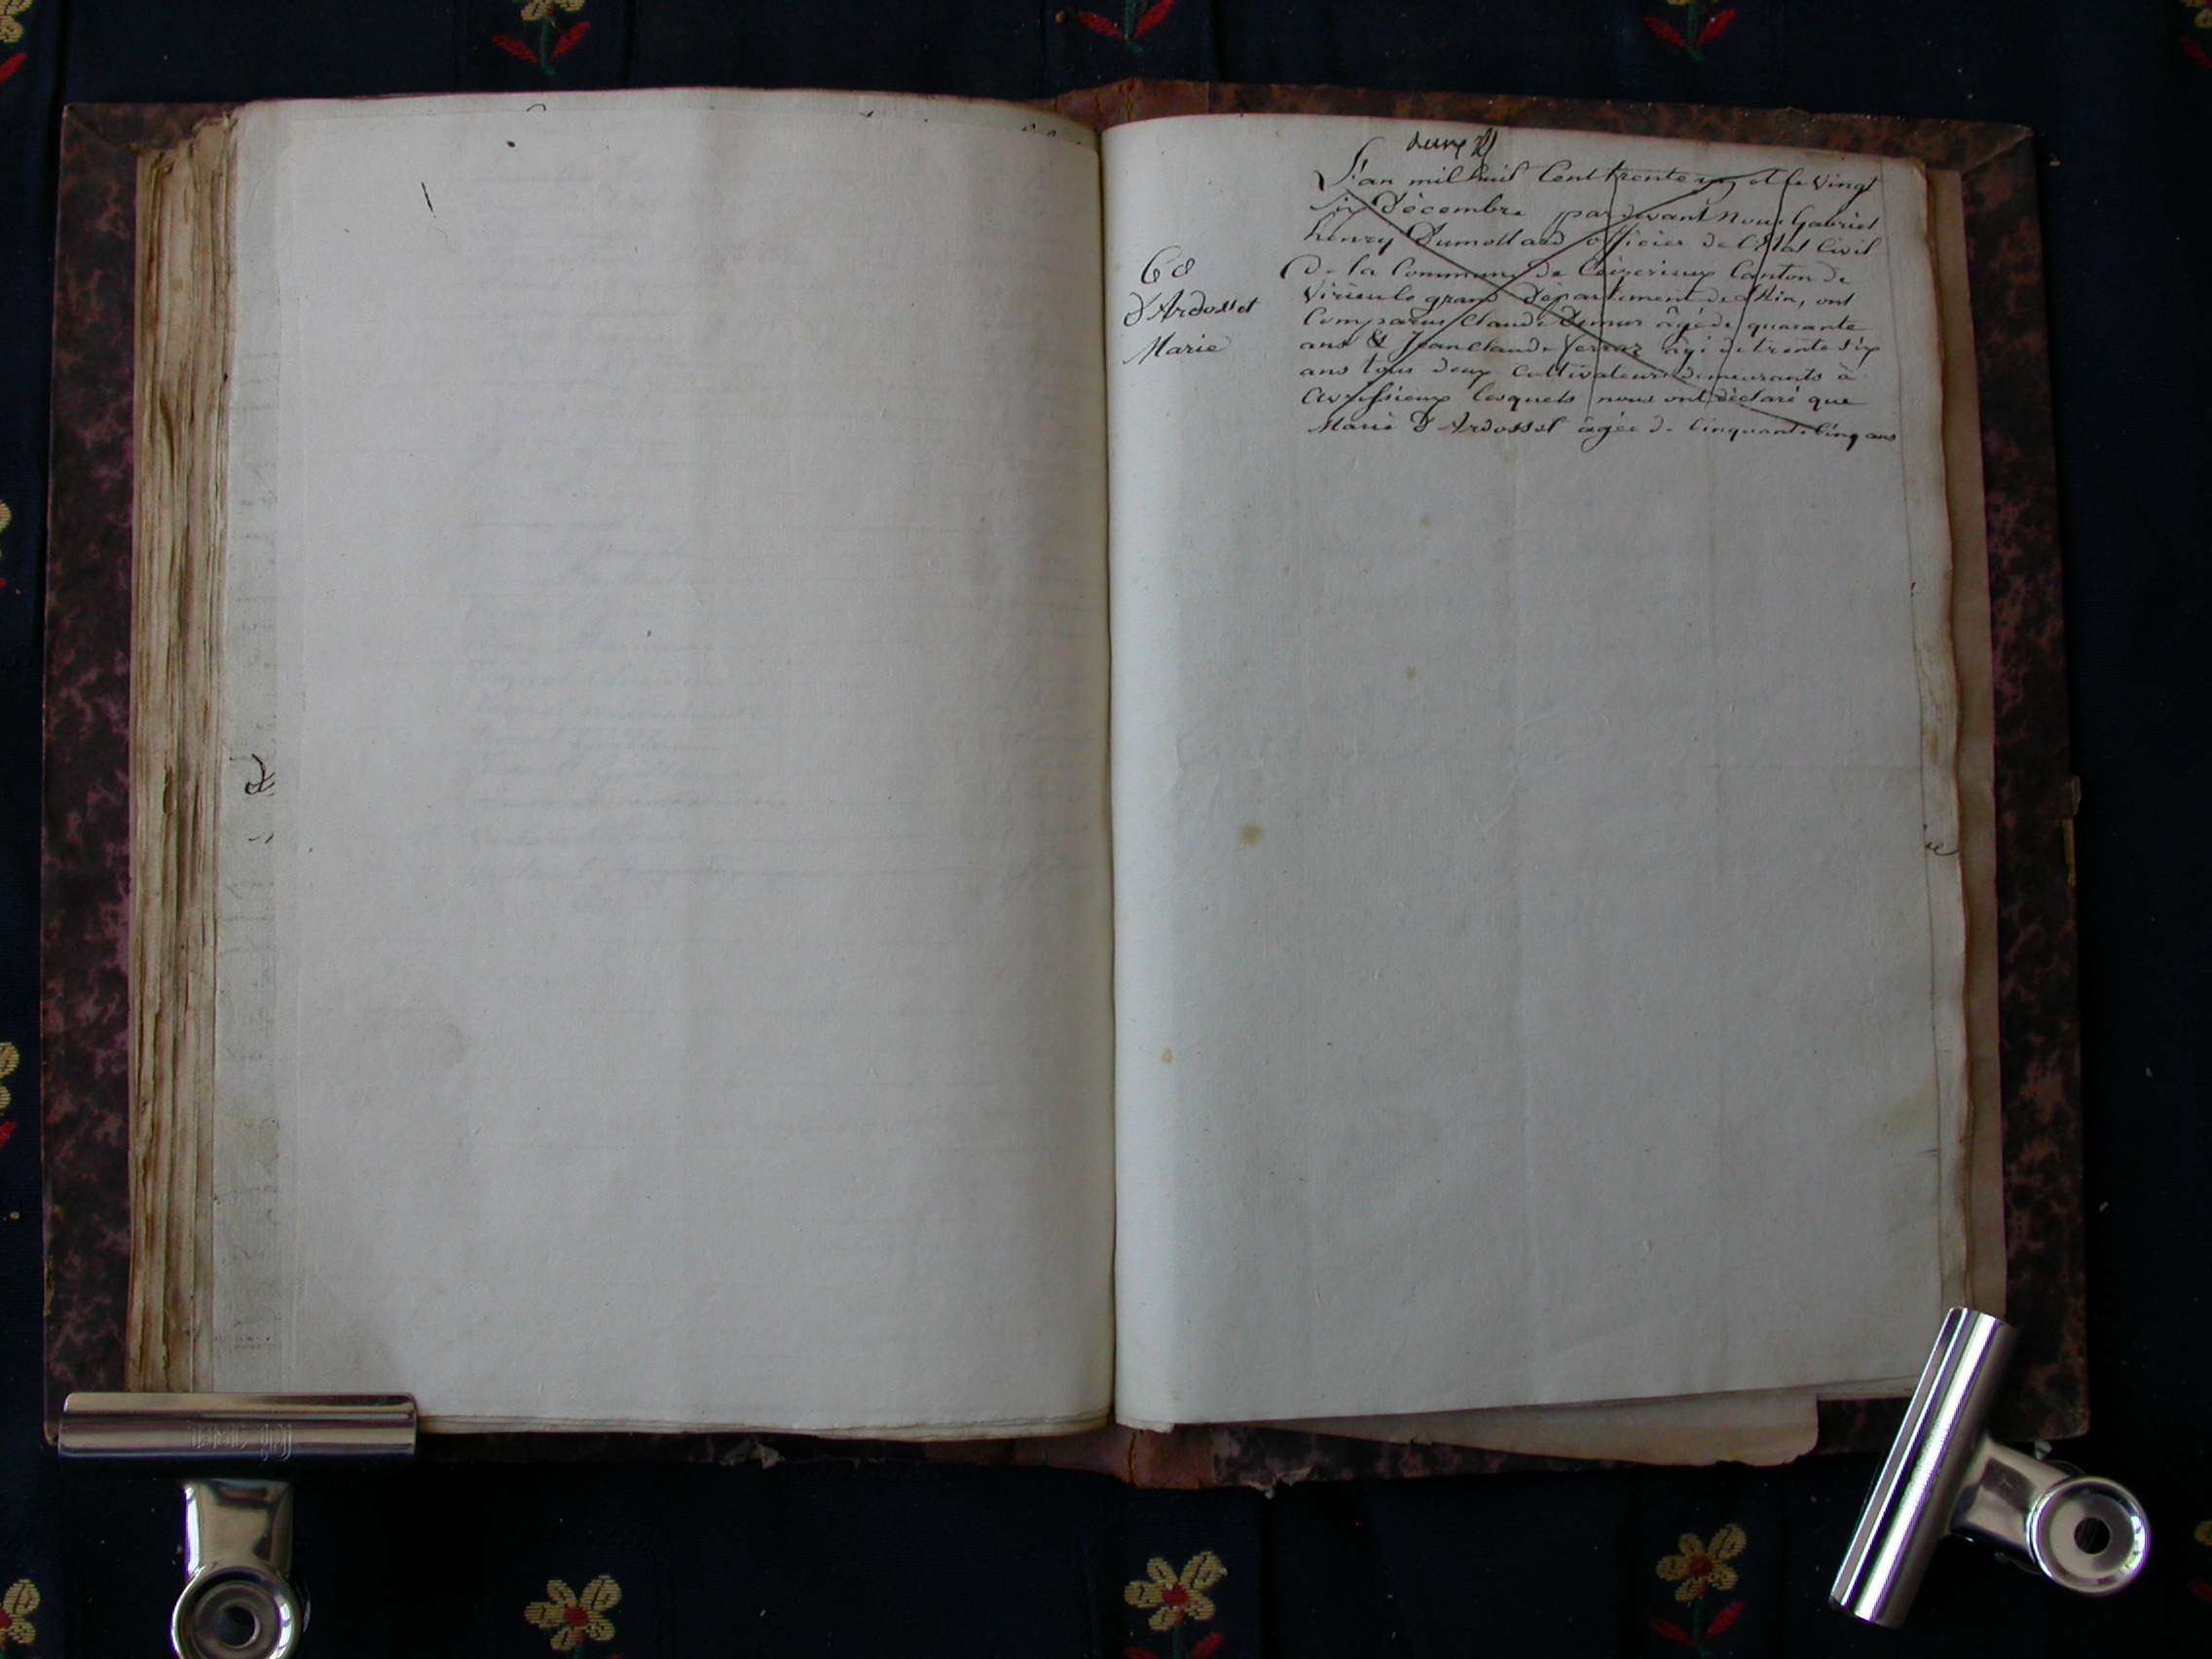 68
D'Ardosset
Marie
L'an mil huit Cent trente un et le vingt
six Décembre pardevant Nous Gabriel
henry Dumollard officier de l'Etat Civil
De la Commune de Ceizerieux Canton de
Virieu le grand Département de l'Ain, ont
Comparus Claude âgé de quarante
ans & Jean Claude âgé de trente six
ans tous deux Cultivateurs demeurants à
Avrissieux lesquels nous ont déclaré que
Marie D'Ardosset âgée de Cinquante Cinq ans